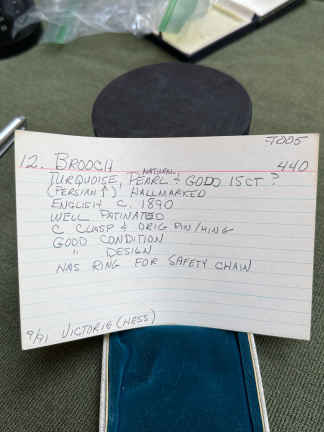 -T005
12. BROOCH 440
NATURAL
TURQUOISE, PEARL + GOLD 15CT ?
(PERSIAN ↑) HALLMARKED
ENGLISH C. 1890
WELL PATINATED
C CLASP & ORIG PIN/HING
GOOD CONDITION
" DESIGN
HAS RING FOR SAFETY CHAIN
9/91 VICTORIE (NESS)